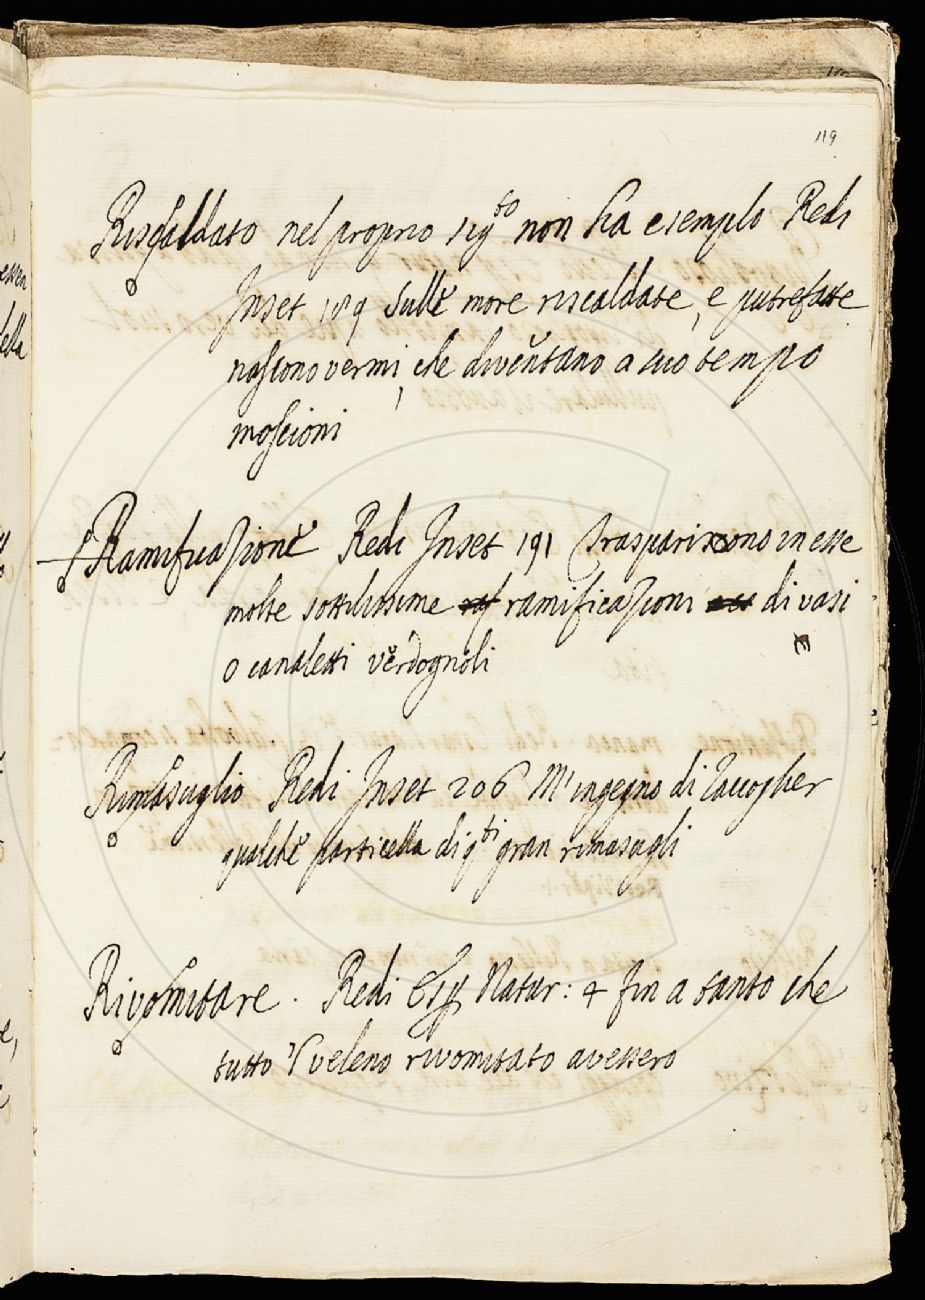 119
Riscaldato nel proprio sig.to non ha esempio Redi
Inset 189 Sulle more riscaldate, e putrefatte
nascono vermi, che diventano a suo tempo
moscioni
Ramificazione Redi Inset 191 Trasparirono in esse
molte sottilissime ramificazioni di vasi
o canaletti verdognoli
Rimasuglio Redi Inset 206 M'ingegno di raccoglier
qualche particella di q.ti gran rimasugli
Rivomitare . Redi Esp Natur: 4 fin a tanto che
tutto 'l veleno rivomitato avessero